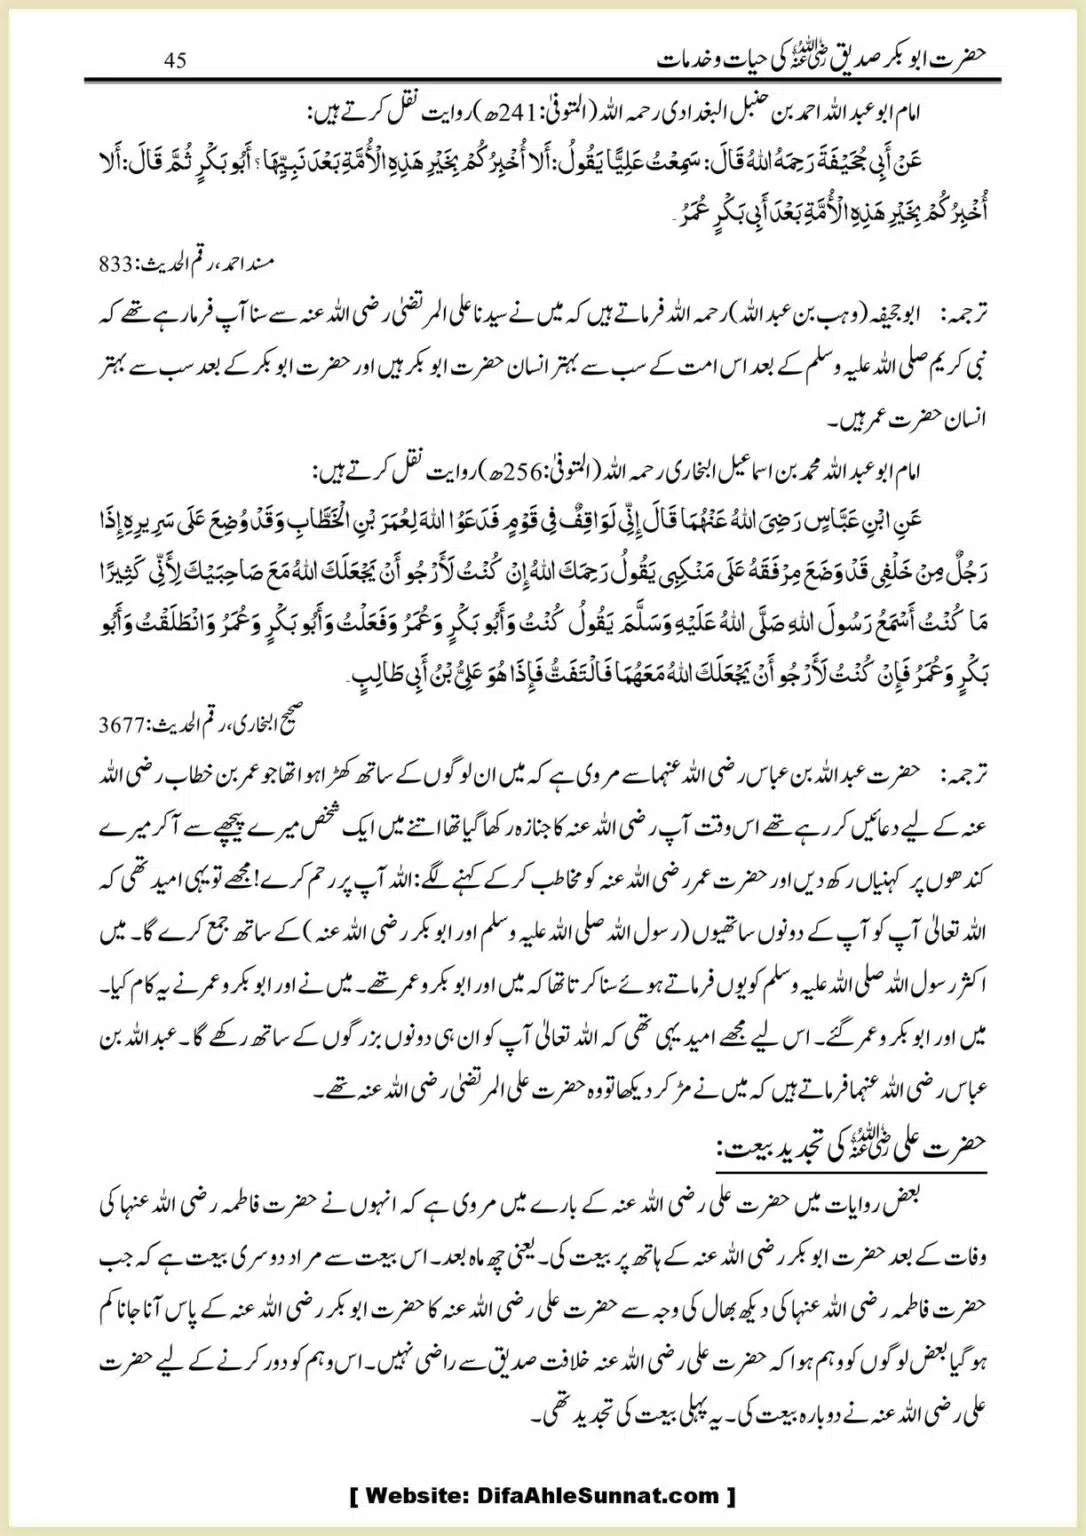 حضرت ابو بکر صدیق رضی اللہ عنہ کی حیات و خدمات
45
امام ابو عبد اللہ احمد بن حنبل البغدادی رحمہ اللہ (المتوفیٰ: 241ھ) روایت نقل کرتے ہیں:
عَنْ أَبِي جُحَيْفَةَ رَحِمَهُ اللهُ قَالَ: سَمِعْتُ عَلِيًّا يَقُولُ: أَلَا أُخْبِرُكُمْ بِخَيْرِ هَذِهِ الْأُمَّةِ بَعْدَ نَبِيِّهَا؟ أَبُو بَكْرٍ ثُمَّ قَالَ: أَلَا
أُخْبِرُكُمْ بِخَيْرِ هَذِهِ الْأُمَّةِ بَعْدَ أَبِي بَكْرٍ عُمَرُ۔
مسند احمد، رقم الحدیث: 833
ترجمہ: ابو جحیفہ (وہب بن عبد اللہ) رحمہ اللہ فرماتے ہیں کہ میں نے سیدنا علی المرتضیٰ رضی اللہ عنہ سے سنا آپ فرما رہے تھے کہ
نبی کریم صلی اللہ علیہ وسلم کے بعد اس امت کے سب سے بہتر انسان حضرت ابو بکر ہیں اور حضرت ابو بکر کے بعد سب سے بہتر
انسان حضرت عمر ہیں۔
امام ابو عبد اللہ محمد بن اسماعیل البخاری رحمہ اللہ (المتوفیٰ: 256ھ) روایت نقل کرتے ہیں:
عَنِ ابْنِ عَبَّاسٍ رَضِيَ اللهُ عَنْهُمَا قَالَ إِنِّي لَوَاقِفٌ فِي قَوْمٍ فَدَعَوُا اللهَ لِعُمَرَ بْنِ الْخَطَّابِ وَقَدْ وُضِعَ عَلَى سَرِيرِهِ إِذَا
رَجُلٌ مِنْ خَلْفِي قَدْ وَضَعَ مِرْفَقَهُ عَلَى مَنْكِبِي يَقُولُ رَحِمَكَ اللهُ إِنْ كُنْتُ لَأَرْجُو أَنْ يَجْعَلَكَ اللهُ مَعَ صَاحِبَيْكَ لِأَنِّي كَثِيرًا
مَا كُنْتُ أَسْمَعُ رَسُولَ اللهِ صَلَّى اللهُ عَلَيْهِ وَسَلَّمَ يَقُولُ كُنْتُ وَأَبُو بَكْرٍ وَعُمَرُ وَفَعَلْتُ وَأَبُو بَكْرٍ وَعُمَرُ وَانْطَلَقْتُ وَأَبُو
بَكْرٍ وَعُمَرُ فَإِنْ كُنْتُ لَأَرْجُو أَنْ يَجْعَلَكَ اللهُ مَعَهُمَا فَالْتَفَتُّ فَإِذَا هُوَ عَلِيُّ بْنُ أَبِي طَالِبٍ۔
صحیح البخاری، رقم الحدیث: 3677
ترجمہ: حضرت عبد اللہ بن عباس رضی اللہ عنہما سے مروی ہے کہ میں ان لوگوں کے ساتھ کھڑا ہوا تھا جو عمر بن خطاب رضی اللہ
عنہ کے لیے دعائیں کر رہے تھے اس وقت آپ رضی اللہ عنہ کا جنازہ رکھا گیا تھا اتنے میں ایک شخص میرے پیچھے سے آکر میرے
کندھوں پر کہنیاں رکھ دیں اور حضرت عمر رضی اللہ عنہ کو مخاطب کر کے کہنے لگے: اللہ آپ پر رحم کرے! مجھے تو یہی امید تھی کہ
اللہ تعالیٰ آپ کو آپ کے دونوں ساتھیوں (رسول اللہ صلی اللہ علیہ وسلم اور ابو بکر رضی اللہ عنہ) کے ساتھ جمع کرے گا۔ میں
اکثر رسول اللہ صلی اللہ علیہ وسلم کو یوں فرماتے ہوئے سنا کرتا تھا کہ میں اور ابو بکر و عمر تھے۔ میں نے اور ابو بکر و عمر نے یہ کام کیا۔
میں اور ابو بکر و عمر گئے۔ اس لیے مجھے امید یہی تھی کہ اللہ تعالیٰ آپ کو ان ہی دونوں بزرگوں کے ساتھ رکھے گا۔ عبد اللہ بن
عباس رضی اللہ عنہما فرماتے ہیں کہ میں نے مڑ کر دیکھا تو وہ حضرت علی المرتضیٰ رضی اللہ عنہ تھے۔
حضرت علی رضی اللہ عنہ کی تجدید بیعت:
بعض روایات میں حضرت علی رضی اللہ عنہ کے بارے میں مروی ہے کہ انہوں نے حضرت فاطمہ رضی اللہ عنہا کی
وفات کے بعد حضرت ابو بکر رضی اللہ عنہ کے ہاتھ پر بیعت کی۔ یعنی چھ ماہ بعد۔ اس بیعت سے مراد دوسری بیعت ہے کہ جب
حضرت فاطمہ رضی اللہ عنہا کی دیکھ بھال کی وجہ سے حضرت علی رضی اللہ عنہ کا حضرت ابو بکر رضی اللہ عنہ کے پاس آنا جانا کم
ہو گیا بعض لوگوں کو وہم ہوا کہ حضرت علی رضی اللہ عنہ خلافت صدیق سے راضی نہیں۔ اس وہم کو دور کرنے کے لیے حضرت
علی رضی اللہ عنہ نے دوبارہ بیعت کی۔ یہ پہلی بیعت کی تجدید تھی۔
[ Website: DifaAhleSunnat.com ]